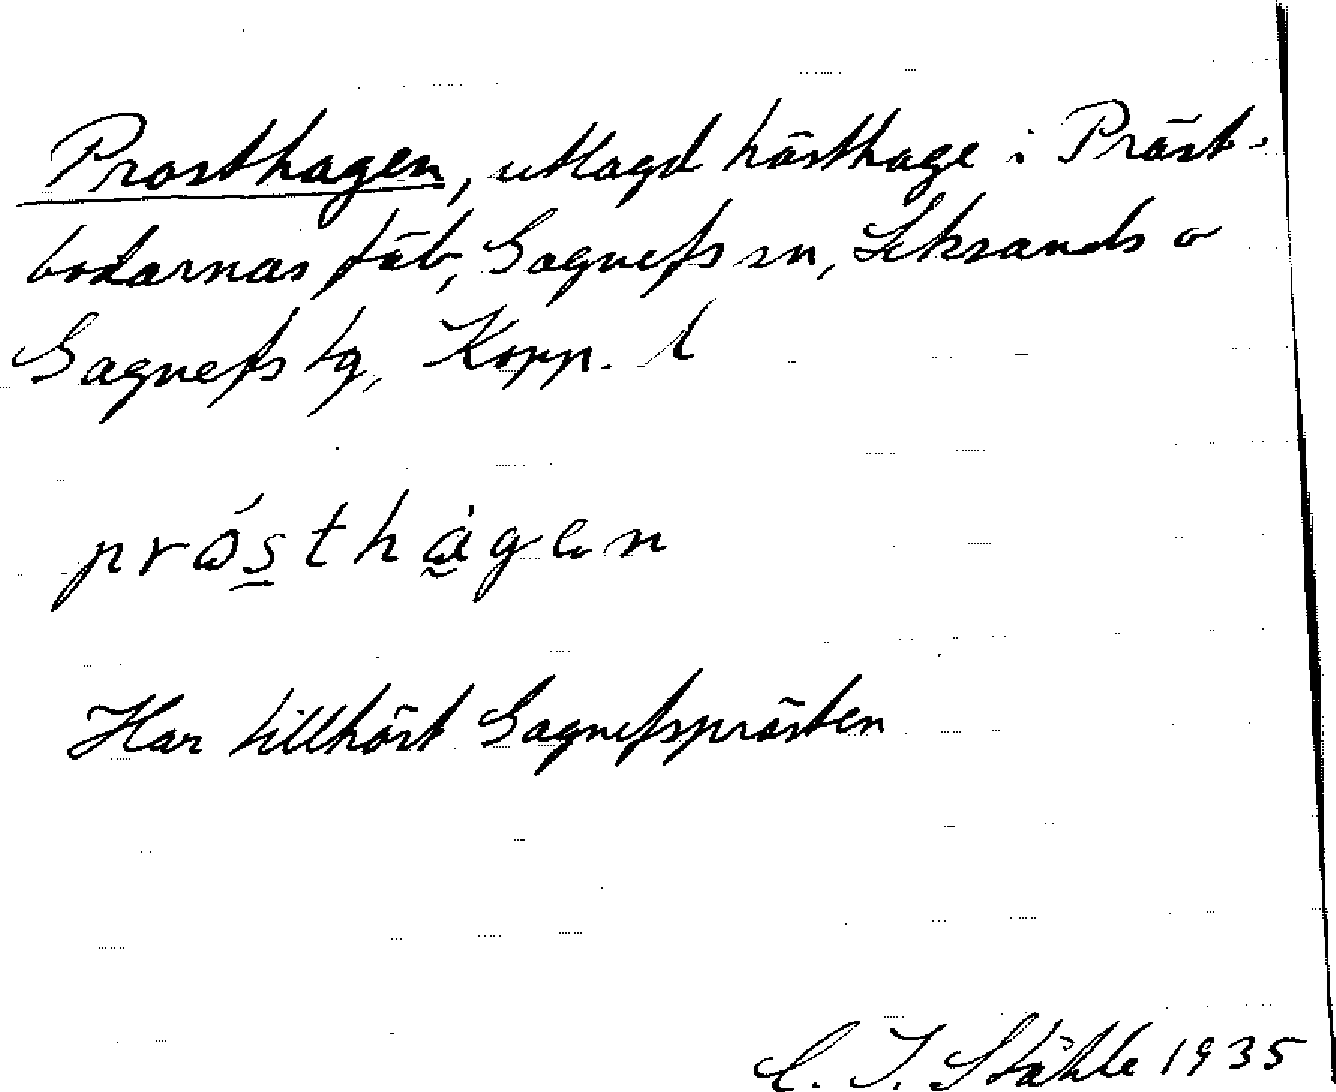 Prosthagen, utlagd hästhage i Präst-
bodarnas fäb, Gagnefs sn, Leksands o
Gagnefs tg, Kopp. l
prósthàgen
Har tillhört Gagnefsprästen
C. I. Ståhle 1935